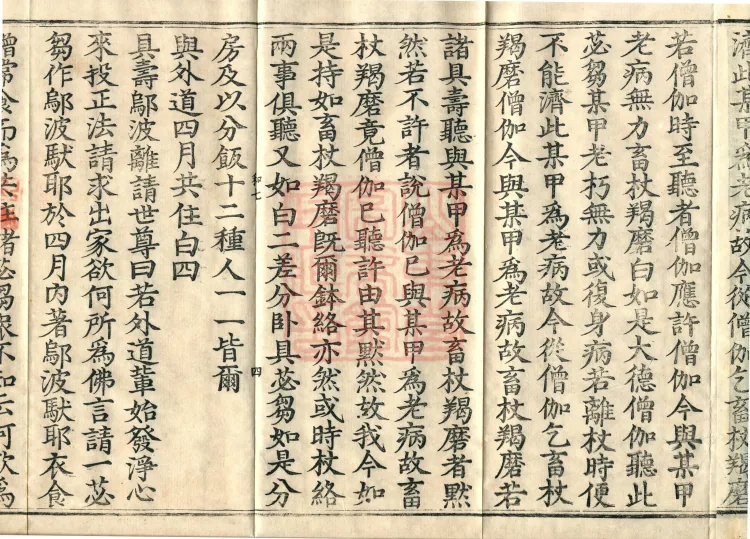 濟此某甲爲老病故今從僧伽乞畜杖羯磨
若僧伽時至聽者僧伽應許僧伽今與某甲
老病無力畜杖羯磨白如是大德僧伽聽此
苾芻某甲老朽無力或復身病若離杖時便
不能濟此某甲爲老病故今從僧伽乞畜杖
羯磨僧伽今與某甲爲老病故畜杖羯磨若
諸具壽聽與某甲爲老病故畜杖羯磨者默
然若不許者說僧伽已與某甲爲老病故畜
杖羯磨竟僧伽已聽許由其默然故我今如
是持如畜杖羯磨旣爾鉢絡亦然或時杖絡
兩事俱聽又如白二差分卧具苾芻如是分
四
房及以分飯十二種人一一皆爾
與外道四月共住白四
具壽鄔波離請世尊曰若外道輩始發淨心
來投正法請求出家欲何所爲佛言請一苾
芻作鄔波馱耶於四月內著鄔波馱耶衣食
僧常食而爲共住者苾芻眾不知云何欲爲